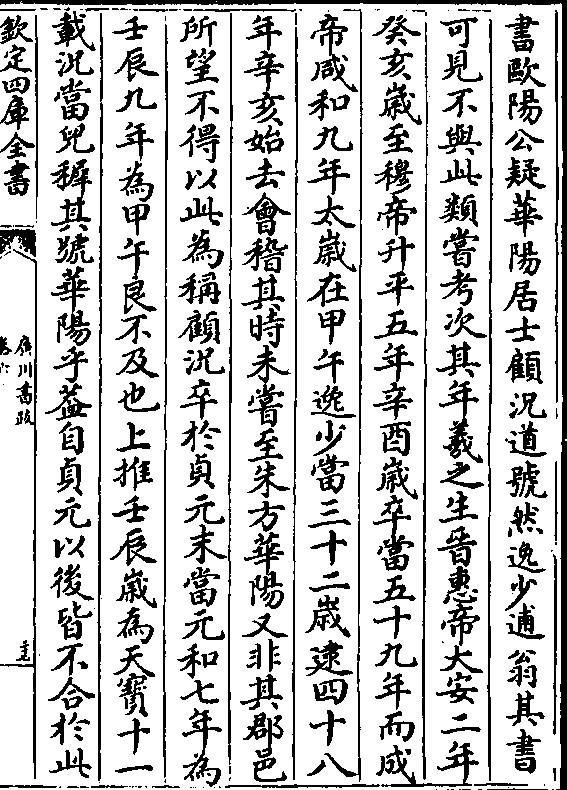 書歐陽公疑華陽居士顧況道號然逸少逋翁其書
可見不與此類嘗考次其年羲之生晉惠帝大安二年
癸亥歲至穆帝升平五年辛酉歲卒當五十九年而成
帝咸和九年太歲在甲午逸少當三十二歲逮四十八
年辛亥始去會稽其時未嘗至朱方華陽又非其郡邑
所望不得以此為稱顧況卒於貞元末當元和七年為
壬辰九年為甲午良不及也上推壬辰歲為天寶十一
載況當兒穉其號華陽乎葢自貞元以後皆不合於此
欽定四庫全書
廣川書跋
卷六